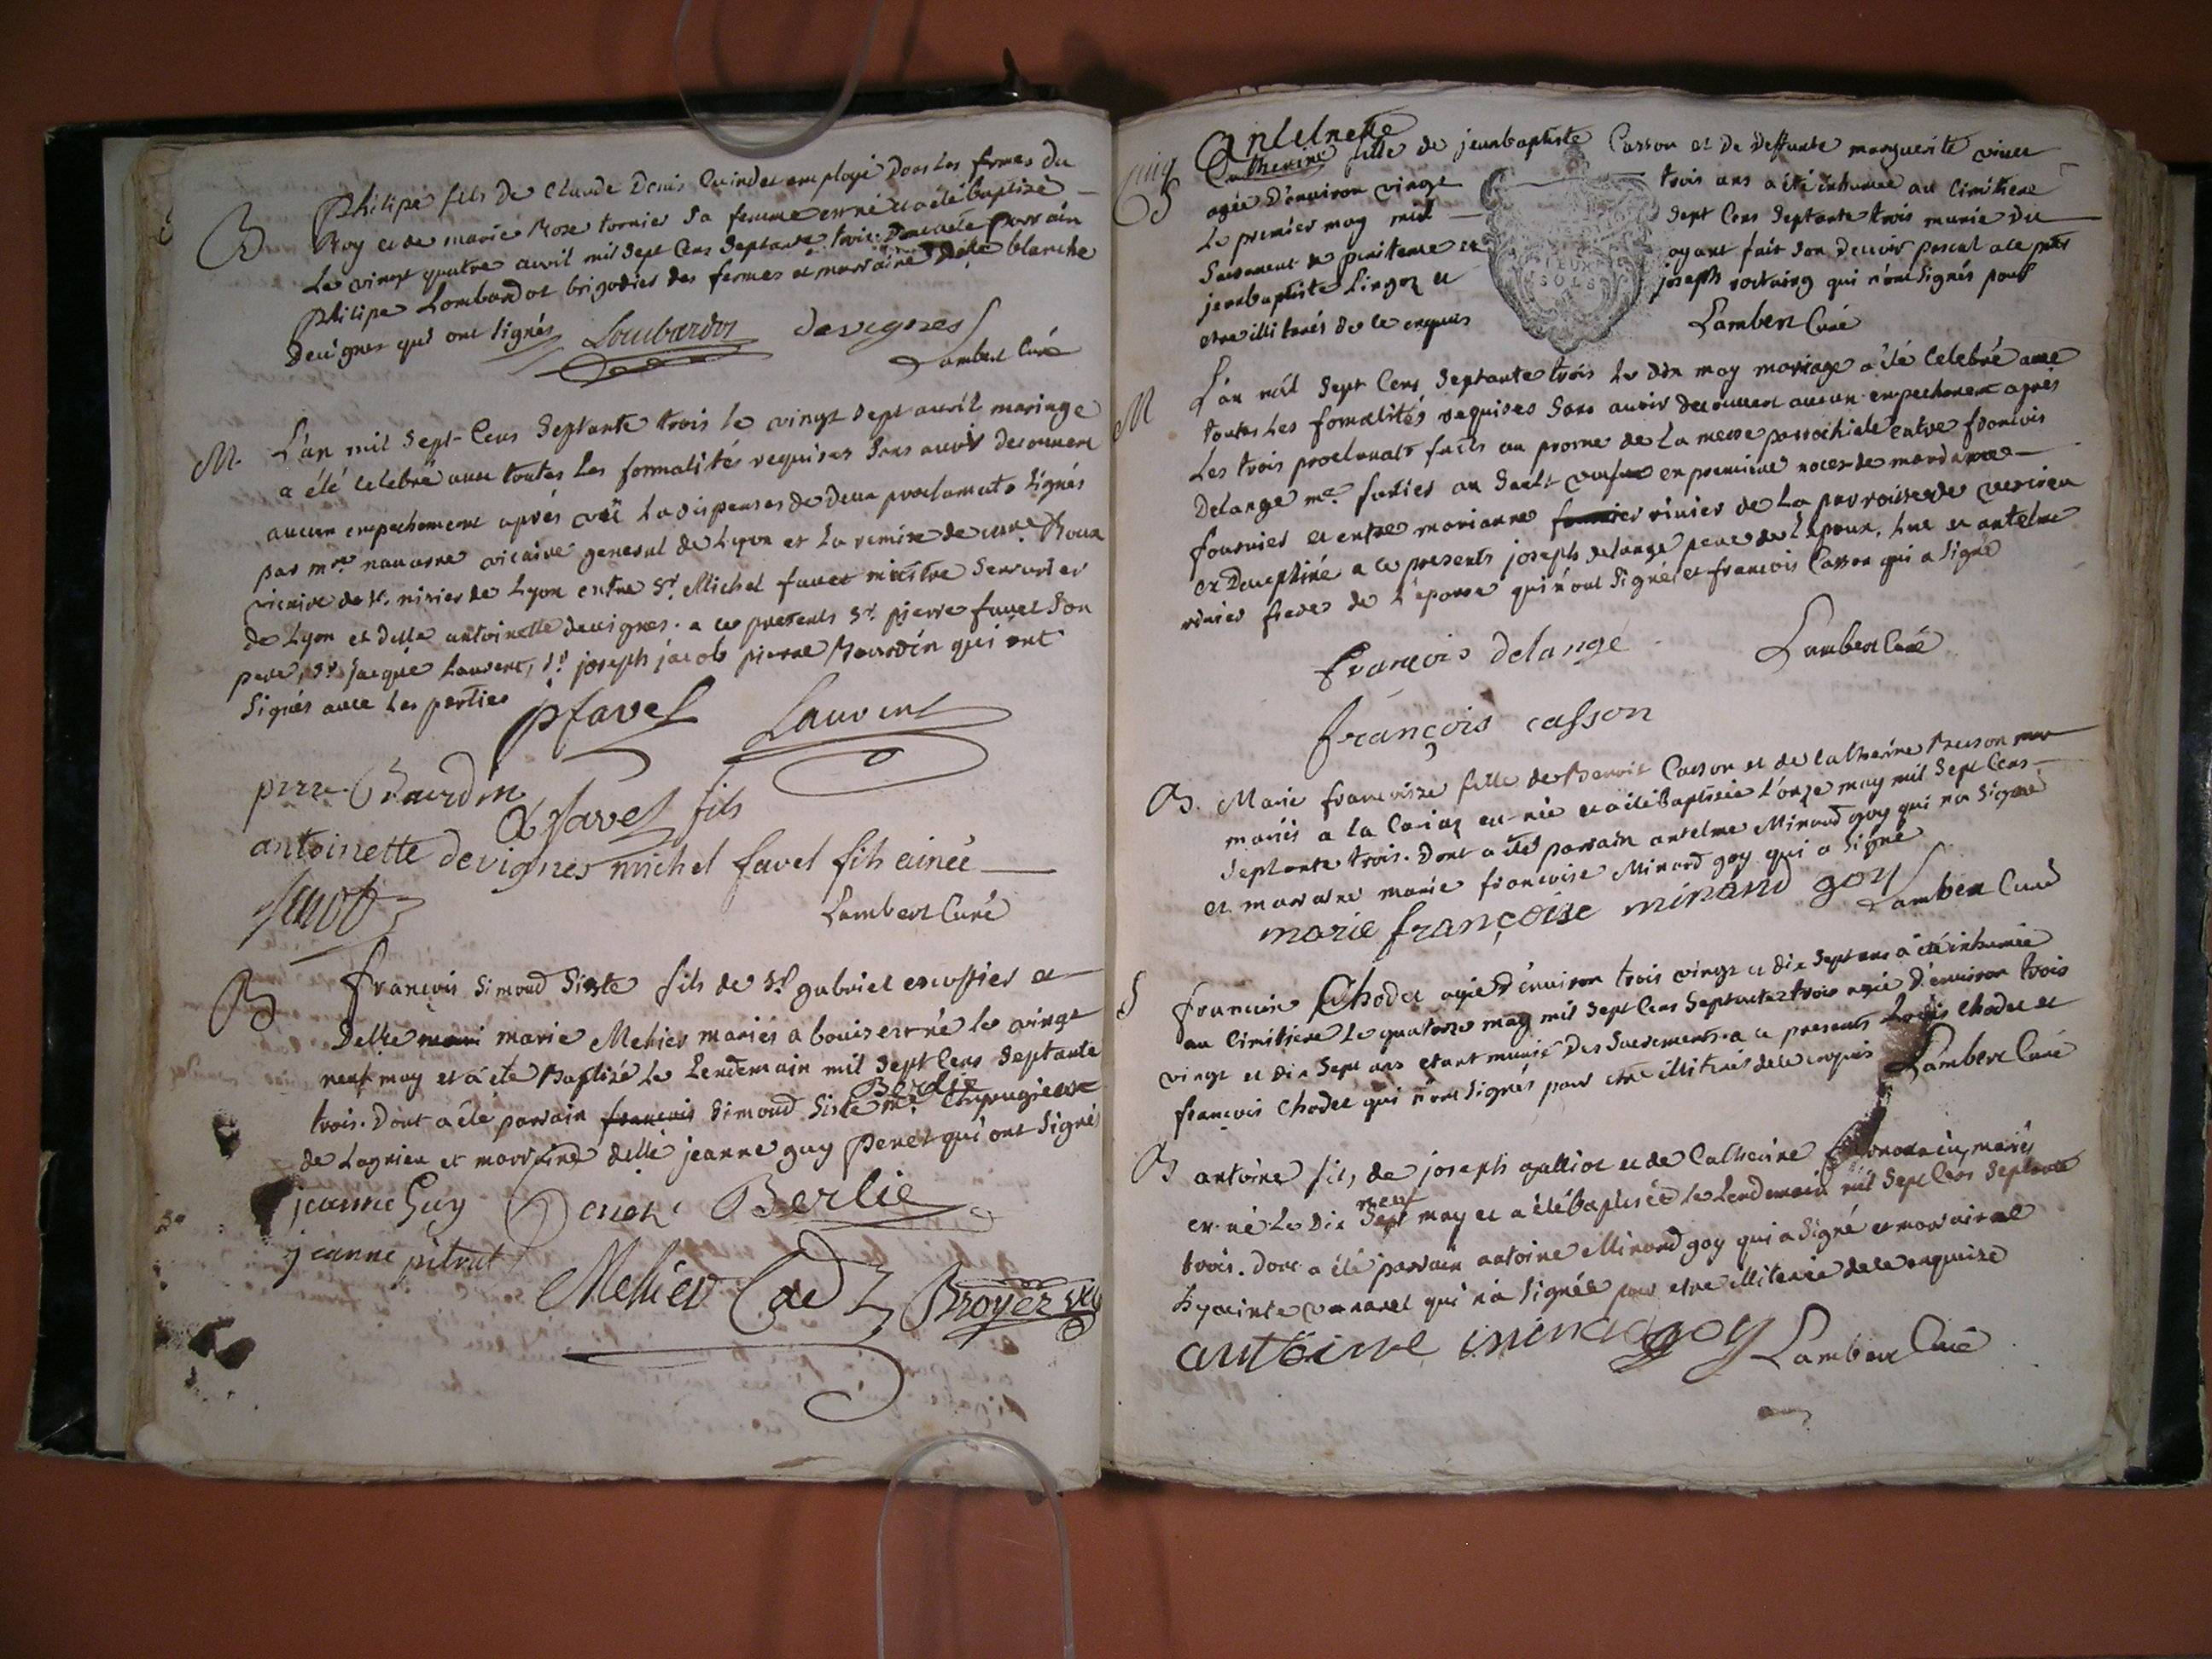 B Philipe fils de Claude Denis Cuindet employé dans les fermes du
Roy et de marie Rose tornier sa femme est né et a été baptisé
Le vingt quatre avril mil sept cens septante trois. Dont a été parrain
Philipe Lombardot brigadier des fermes et marraine delle blanche
Devignes qui ont signés Lombardot devignes
Lambert Curé
M. L'an mil sept Cens Septante trois le vingt sept avril mariage
a été celebré avec toutes les formalités requises sans avoir decouvert
aucun empechement aprés vûë la dispenses de deux proclamats signés
par mre navarre vicaire general de Lyon et la remise de mre Roux
vicaire de st. nisier de Lyon entre Sr. Michel favet maistre Serrurier
de Lyon et delle antoinette devignes. a ce presents Sr. pierre favet son
pere, Sr. Jacque Laurent, Sr. joseph jacob pierre Bourdin qui ont
signés avec les parties pfavet Laurent
Bourdin
favet fils
antoinette devignes michel favet fils ainée
Jacob
Lambert Curé
B francois Simond Siste fils de Sr. gabriel escoffier et
Delle marie Mehier mariés a bouis est né le vingt
neuf may et a été Baptisé le lendemain mil sept Cens septante
Berlie
trois. Dont a été parrain francois Simond Siste me. Chirugien
de Lagnieu et marraine delle jeanne guy Penet qui ont signé
jeanne Guy Berlie
jeanne pitrat
Mehier Cadz Broyer
Antelmette
B Catherine fille de jeanbaptiste Casson et de deffunte marguerite
S agée D'environ vingt trois ans a été inhumée au Cimitiere
Le premier may mil sept Cens Septante trois munie du
Sacrement de penitence et ayant fait son devoir pascal a ce pnts
jeanbaptiste Lingoz et joseph qui n'ont signés pour
etre illiterés de ce enquis Lambert Curé
DEUX
SOLS
M L'an mil sept Cens Septante trois le dix may mariage a été Celebré avec
toutes les formalités requises sans avoir decouvert aucun empechement aprés
Les trois proclamats faits au prorne de la messe parrochiale entre francois
Delange me. fustier au Sault veuf en premiere noces de mardame
fournier et entre marianne fournier rivier de La parroisse de vezirou
en Dauphiné a ce presents joseph delange pere de L'epoux, luc et antelme
rivier freres de L'epouse qui n'ont signés et francois Casson qui a signé
françois delange Lambert Curé
françois casson
B. Marie francoise fille de Benoit Casson et de Catherine Buison
mariés a la est née et a été Baptisée L'onze may mil sept Cens
Septante trois. Dont a été parrain antelme Minand goy qui n'a signé
et marraine marie francoise Minand goy qui a signé
marie françoise minand goy Lambert Curé
S francoise Chodet agée D'environ trois vingt et dix sept ans a été inhumée
au Cimitiere Le quatorze may mil sept Cens Septante trois agée D'environ trois
vingt et dix sept ans etant munie Des Sacrements. a ce presents Chodet et
francois Chodet qui n'ont signés pour etre illiterés de ce enquis Lambert Curé
B antoine fils de joseph galliot et de Catherine mariés
neuf
est né Le Dix sept may et a été Baptisé le lendemain mil Sept Cens Septante
trois. Dont a été parrain antoine Minand goy qui a signé et marraine
hyacinte qui n'a signée pour etre illiterée de ce enquise
antoine minand goy Lambert Curé